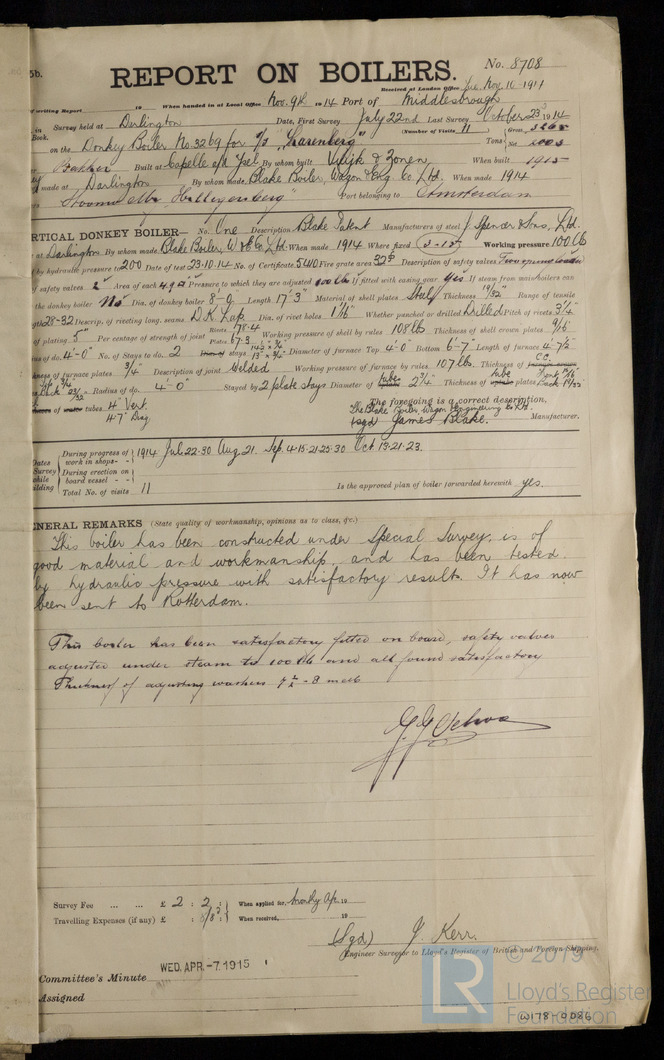 5b.
REPORT ON BOILERS.
No. 8708
Received at London Office Tue. Nov. 10 1914
of writing Report 19 When handed in at Local Office Nov. 9th 1914 Port of Middlesbrough
in Survey held at Darlington Date, First Survey July 22nd Last Survey October 23rd 1914
Book. (Number of Visits 11) Gross
on the Donkey Boiler No. 3269 for S/S "Laarenberg" Tons
Built at Capelle a/d Ysel By whom built Vuyk & Zonen When built 1915
made at Darlington By whom made Blake Boiler, Wagon & Eng. Co. Ltd. When made 1914
Port belonging to Amsterdam
RTICAL DONKEY BOILER— No. One Description Blake Patent Manufacturers of steel J. Spencer & Sons, Ltd.
at Darlington By whom made Blake Boiler, W & E Co. Ltd. When made 1914 Where fixed Working pressure 100 lb
by hydraulic pressure to 200 Date of test 23.10.14 No. of Certificate 5410 Fire grate area Description of safety valves
of safety valves 2" Area of each 4.9 Pressure to which they are adjusted 100 lb If fitted with easing gear Yes If steam from main boilers can
the donkey boiler No Dia. of donkey boiler 8'-0 Length 17'3" Material of shell plates Steel Thickness 19/32" Range of tensile
28-32 Descrip. of riveting long. seams D.R. Lap Dia. of rivet holes 1 1/16" Whether punched or drilled Drilled Pitch of rivets 3 1/4"
of plating 5" Per centage of strength of joint Rivets 78.4 Plates 67.3 Working pressure of shell by rules 108 lb Thickness of shell crown plates 9/16"
us of do. 4'-0" No. of Stays to do. 2 stays Diameter of furnace Top 4'-0 Bottom 6'-7" Length of furnace 4'-7 1/2"
of furnace plates 3/4" Description of joint Welded Working pressure of furnace by rules 107 lb. Thickness of
Radius of do. 4'0" Stayed by 2 plate stays Diameter of tube 2 1/4" Thickness of tube plates Front Back
of water tubes 4" Vert. 47° Diag.
The foregoing is a correct description,
The Blake Boiler, Wagon & Engineering Co. Ltd.
(sgd) James Blake. Manufacturer.
Dates
Survey
while
ilding
During progress of work in shops - - 1914 Jul. 22.30 Aug 21. Sep. 4.15.21.25.30 Oct 13.21.23.
During erection on board vessel - - -
Total No. of visits 11
Is the approved plan of boiler forwarded herewith yes.
ENERAL REMARKS (State quality of workmanship, opinions as to class, &c.)
This boiler has been constructed under Special Survey, is of
good material and workmanship, and has been tested
by hydraulic pressure with satisfactory results. It has now
been sent to Rotterdam.
This boiler has been satisfactory fitted on board, safety valves
adjusted under steam to 100 lb and all found satisfactory
Thickness of adjusting washers
Survey Fee ... ... £ 2 : 2 : When applied for, Monthly Ap. 19
Travelling Expenses (if any) £ : When received, 19
(Sgd) J. Kerr.
Engineer Surveyor to Lloyd's Register of British and Foreign Shipping.
Committee's Minute WED. APR. -7. 1915
Assigned
LR
© 2019
Lloyd's Register
Foundation
W178-0086